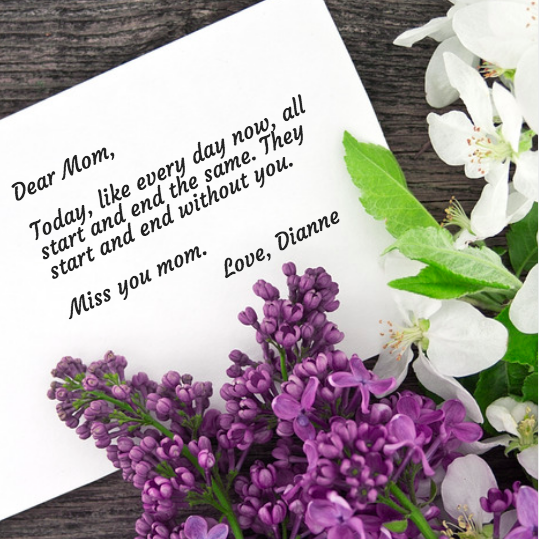 Dear Mom,
Today, like every day now, all
start and end the same. They
start and end without you.
Miss you mom.
Love, Dianne